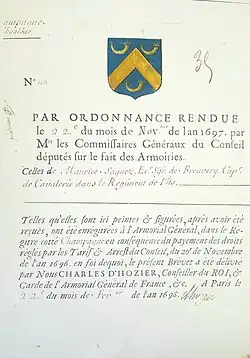 Champagne
Chaalons
35
N.º 110
PAR ORDONNANCE RENDUE
le 22.e du mois de Nov.bre de l'an 1697. par
M.rs les Commissaires Généraux du Conseil
députés sur le fait des Armoiries.
Celles de Maurice
de Cavalerie dans le Regiment de
Telles qu'elles sont ici peintes & figurées, après avoir été
reçues, ont été enregistrées à l'Armorial Général, dans le Re-
gitre cotté Champagne en conséquence du payement des droits
reglés par les Tarif & Arrest du Conseil, du 20.e de Novembre
de l'an 1696. en foi de quoi, le présent Brevet a été délivré
par Nous CHARLES D'HOZIER, Conseiller du ROI, &
Garde de l'Armorial Général de France, &c. A Paris le
22.e du mois de de l'an 1698. d'Hozier